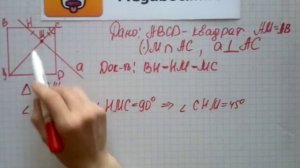 B H C
M
Дано: ABCD-квадрат AM=AB
(·)M ∩ AC, a⊥AC
a
Док-ть: BH=HM=MC
D
Δ
∠ HMC=90° ⇒ ∠CHM=45°